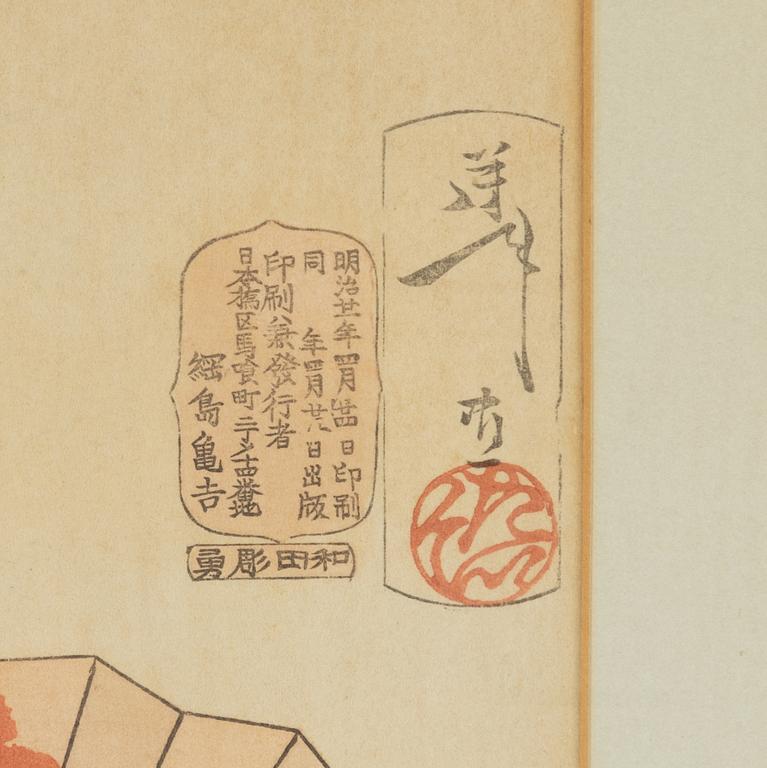 芳年画
明治廿一年四月廿四日印刷
同 年四月廿八日出版
印刷兼發行者
日本橋区馬喰町二丁メ十四番地
綱島亀吉
和田彫勇